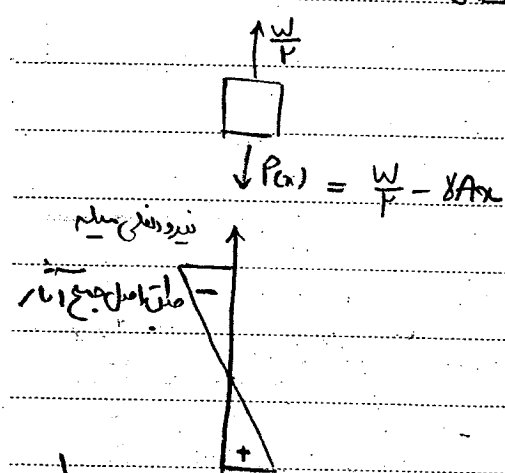 W/۲
P(x) = W/۲ - γAx
نیرو داخلی میله
جمع آثار
-
+